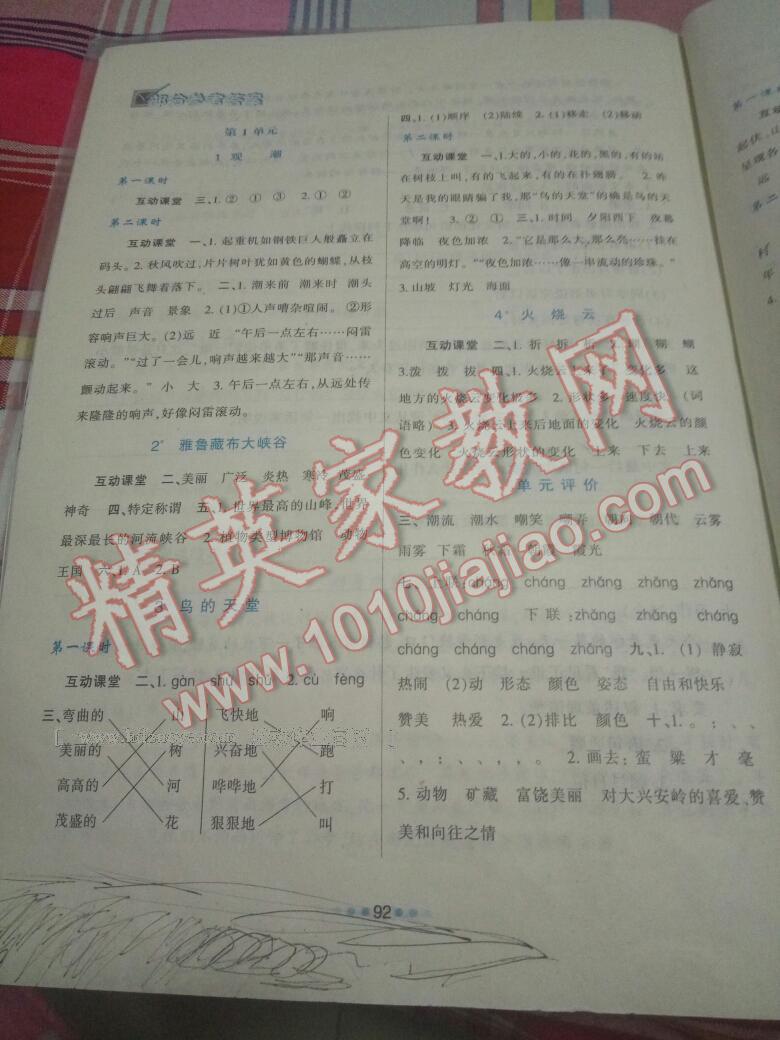 部分参考答案
第1单元
1 观 潮
第一课时
互动课堂 三、1. ② ① ③ 2. ① ②
第二课时
互动课堂 一、1. 起重机如钢铁巨人般矗立在
码头。 2. 秋风吹过,片片树叶犹如黄色的蝴蝶,从枝
头翩翩飞舞着落下。 二、1. 潮来前 潮来时 潮头
过后 声音 景象 2. (1)①人声嘈杂喧闹。 ②形
容响声巨大。(2)远 近 “午后一点左右……闷雷
滚动。”“过了一会儿,响声越来越大”“那声音……
颤动起来。” 小 大 3. 午后一点左右,从远处传
来隆隆的响声,好像闷雷滚动。
2* 雅鲁藏布大峡谷
互动课堂 二、美丽 广泛 炎热 寒冷 茂盛
神奇 四、特定称谓 五、1. 世界最高的山峰 世界
最深最长的河流峡谷 2. 植物类型博物馆 动物
王国 六、1. A 2. B
3 鸟的天堂
第一课时
互动课堂 二、1. gàn shǔ shù 2. cù fèng
三、弯曲的 山 飞快地 响
美丽的 树 兴奋地 跑
高高的 河 哗哗地 打
茂盛的 花 狠狠地 叫
四、1. (1)顺序 (2)陆续 2. (1)移走 (2)移动
第二课时
互动课堂 一、1. 大的,小的,花的,黑的,有的站
在树枝上叫,有的飞起来,有的在扑翅膀。 2. 昨
天是我的眼睛骗了我,那“鸟的天堂”的确是鸟的天
堂啊! 3. ② ① 三、1. 时间 夕阳西下 夜幕
降临 夜色加浓 2. “它是那么大,那么亮……挂在
高空的明灯。”“夜色加浓……像一串流动的珍珠。”
3. 山坡 灯光 海面
4* 火 烧 云
互动课堂 二、1. 折 拆 析 2. 糊 蝴
3. 泼 拨 拔 四、1. 火烧云上来了 变化多 这
地方的火烧云变化极多 2. 形状多 速度快 (词
语略) 3. 火烧云上来后地面的变化 火烧云的颜
色变化 火烧云形状的变化 上来 下去 上来
单元评价
三、潮流 潮水 嘲笑 嘲弄 朝向 朝代 云雾
雨雾 下霜 朝霞 霞光
七、上联:cháng cháng zhǎng zhǎng zhǎng
cháng cháng 下联:zhǎng zhǎng cháng
cháng cháng cháng zhǎng 九、1. (1) 静寂
热闹 (2)动 形态 颜色 姿态 自由和快乐
赞美 热爱 2. (2)排比 颜色 十、1. 。; 、 、
、, ; 、 、, , 。 2. 画去:蛮 粱 才 毫
5. 动物 矿藏 富饶美丽 对大兴安岭的喜爱、赞
美和向往之情
92
第一课时
互动
起伏,山
呈现各
远
第二
村
年
4.
精英家教网
www.1010jiajiao.com